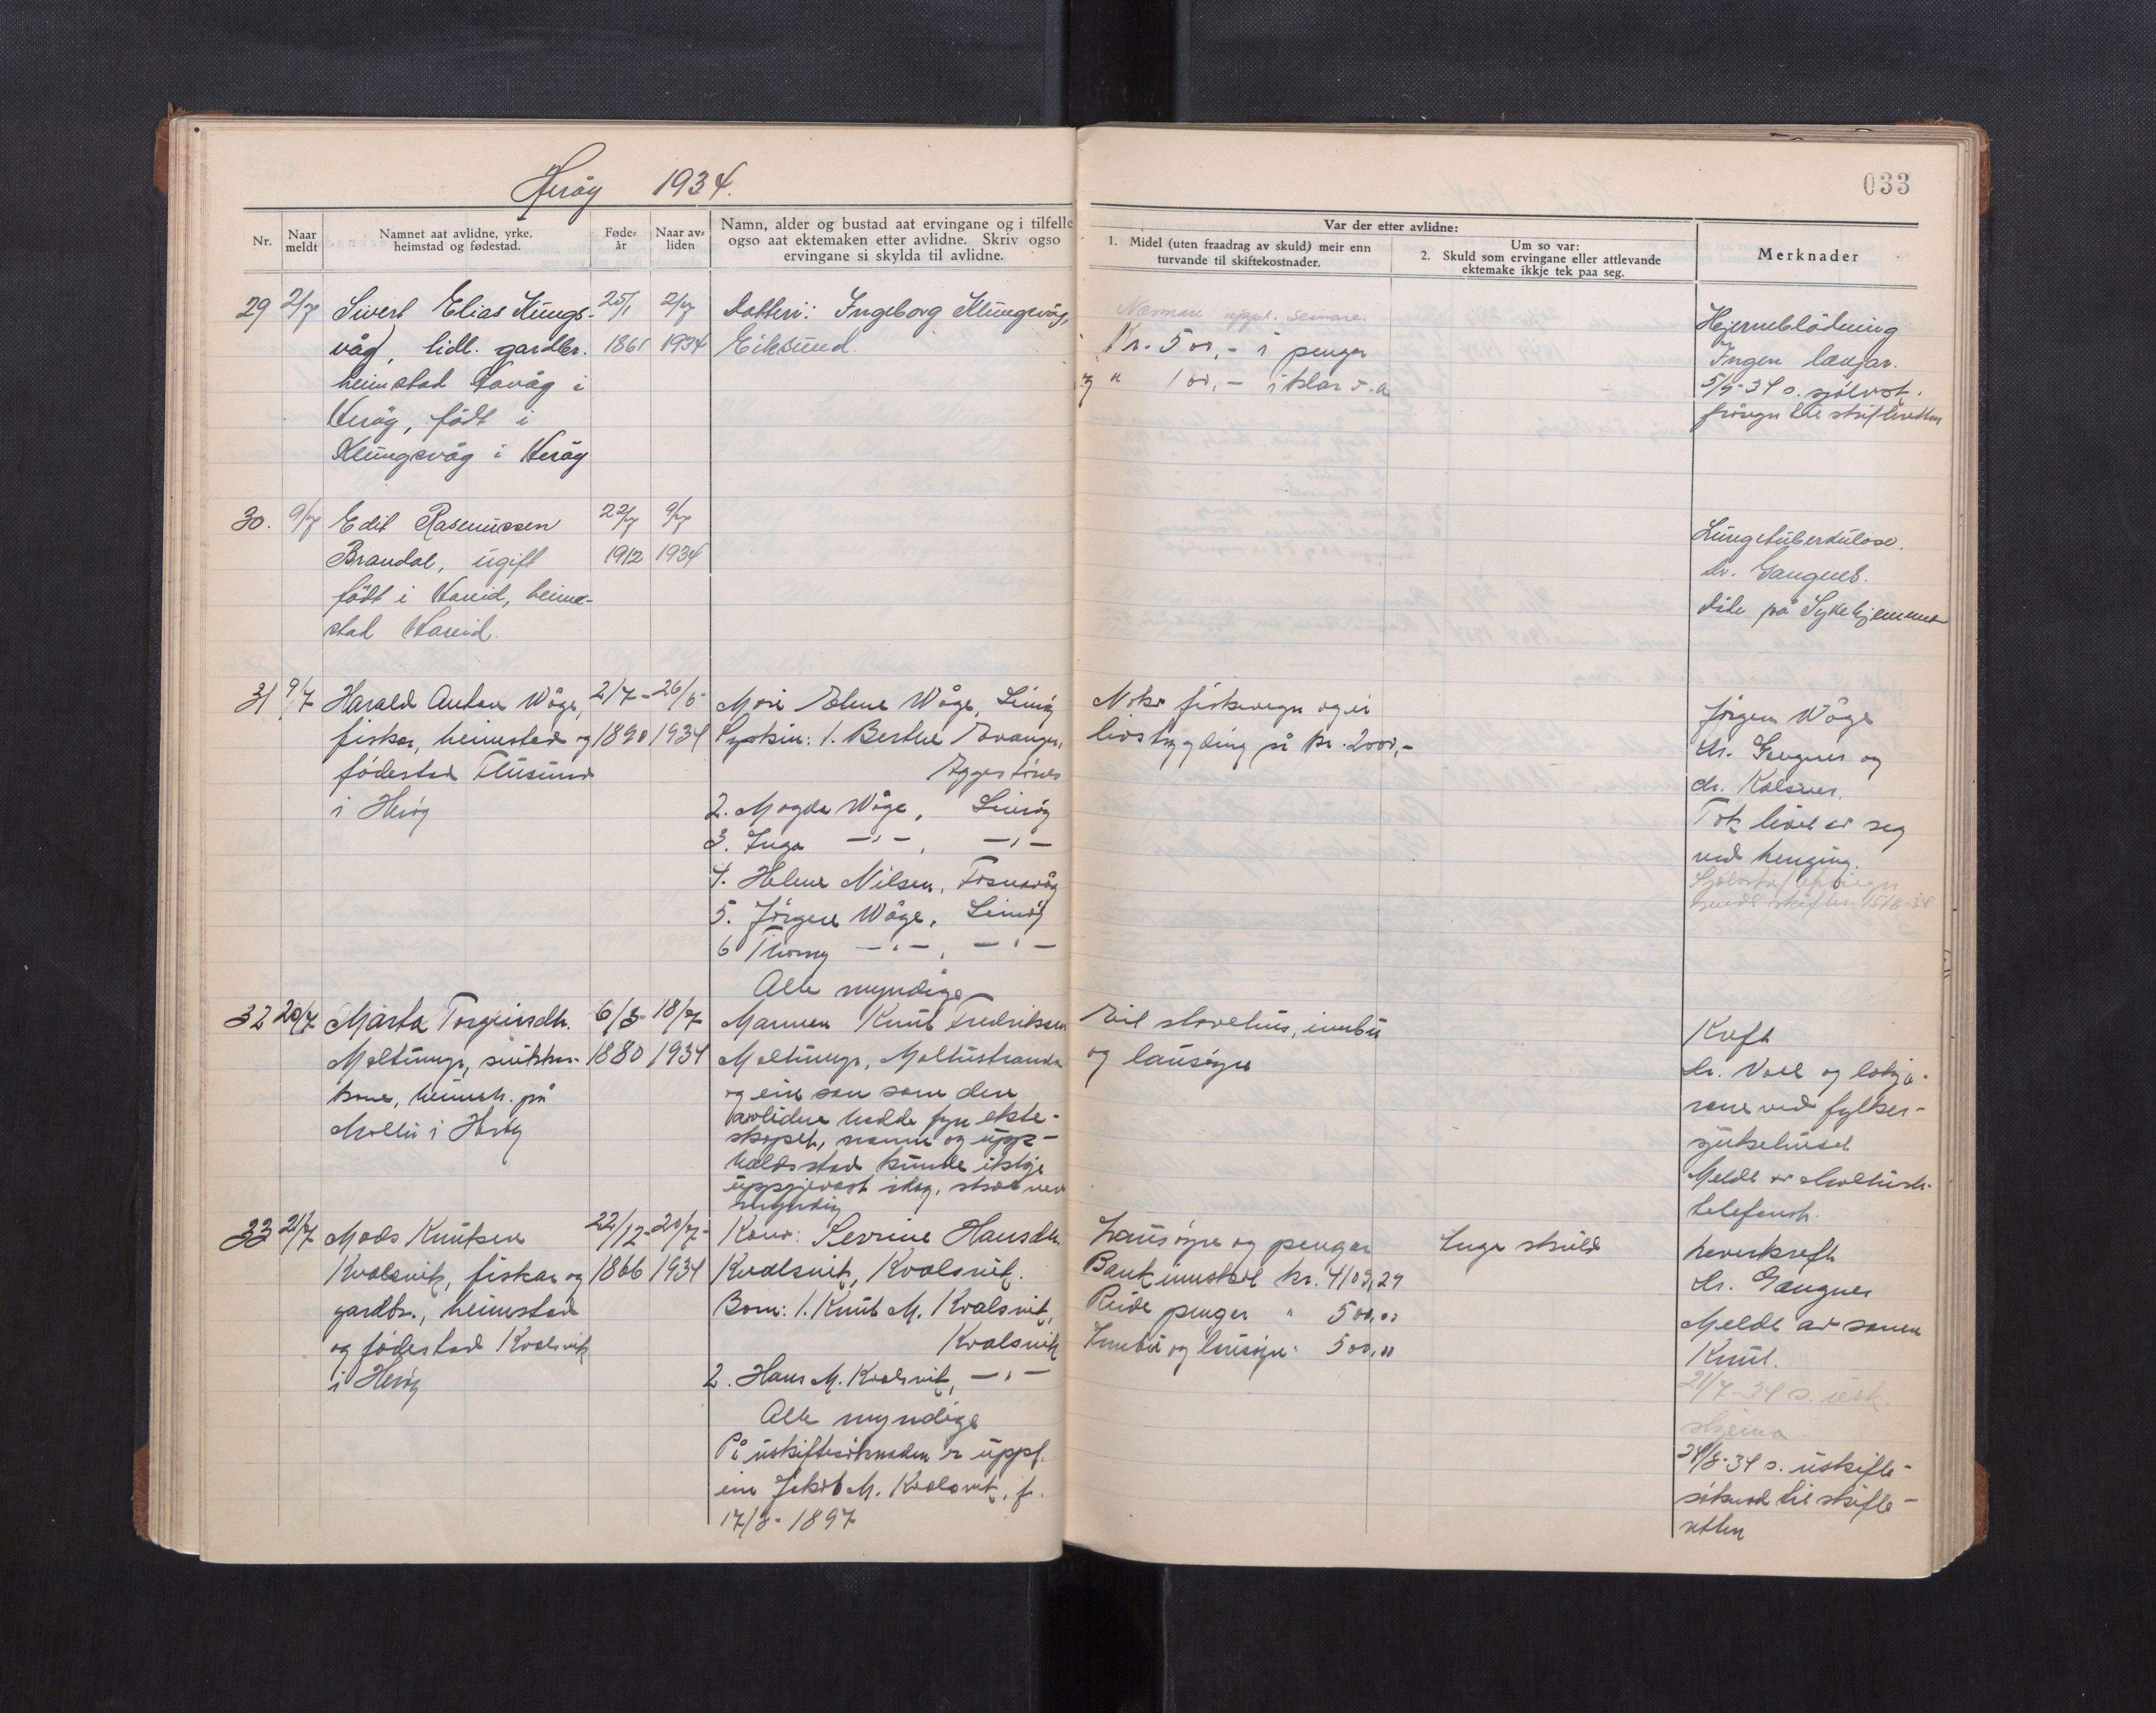 Herøy 1934.
033
Nr.
Naar meldt
Namnet aat avlidne, yrke. heimstad og fødestad.
Føde-år
Naar av-liden
Namn, alder og bustad aat ervingane og i tilfelle
ogso aat ektemaken etter avlidne. Skriv ogso
ervingane si skylda til avlidne.
Var der etter avlidne:
1. Midel (uten fraadrag av skuld) meir enn
turvande til skiftekostnader.
Um so var:
2. Skuld som ervingane eller attlevande
ektemake ikkje tek paa seg.
Merknader
29 2/7 Sivert Elias Klungs- 25/1 2/7 Dotteri: Ingeborg Klungsvåg,
våg, lidl. gardbr. 1861 1934 Eiksund.
heimstad Tovåg i
Herøy, født i
Klungsvåg i Herøy
Nærmare uppl. senare.
Kr. 500,- i pengar
og " 100,- i klær o.a.
Hjerneblödning
Ingen
5/9-34 s. sjølvst.
frøsegn til skifteretten
30. 9/7 Edit Rasmussen 22/7 9/7
Brandal, ugift 1912 1934
født i Hareid, heim-
stad Hareid.
Lungetuberkulose.
dr. Gangnes.
døde på Sykehjemmet
31 9/7 Harald Anton Våge, 2/7- 26/5- Mori Elene Våge, Leinøy
fiskar, heimstad og 1890 1934 Syskin: 1. Berthe Evanger,
fødestad Flusund Eggesbønes
i Herøy 2. Magda Våge, Leinøy
3. Inga -"-, -"-
4. Helene Nilsen, Fosnavåg
5. Jørgen Våge, Leinøy
6 Thorny -"-, -"-
Alle myndige
Noko fiskevegn og ei
livstrygding på kr. 2000,-
Jørgen Våge
dr. Gangnes og
dr. Kalsnes.
Tok livet av seg
ved henging.
sendt skifter. 15/8-34
32 20/7 Marta Torgeirsdtr. 6/3- 18/7 Mannen Knut Fredriksen
Moltumyr, snikkar- 1880 1934 Moltumyr, Moltustranda
kone, heimst. på og ein son som den
Moltu i Herøy avlidne hadde fyr ekte-
skapet, namn og upp-
haldsstad kunde ikkje
uppgjevast idag, skal vera
myndig
Eit stovehus, innbu
og lausøyre
Kreft
dr. Voll og lækja-
rane ved fylkes-
sjukehuset
Meldt av Moltustr.
telefonst.
33 21/7 Mads Knutsen 22/12- 20/7- Kona: Severine Hansdtr.
Kvalsvik, fiskar og 1866 1934 Kvalsvik, Kvalsvik.
gardbr., heimstad Born: 1. Knut M. Kvalsvik,
og fødestad Kvalsvik Kvalsvik
i Herøy 2. Hans M. Kvalsvik, -"-
Alle myndige
På uskiftesøknaden er uppf.
ein Jakob M. Kvalsvik, f.
17/8-1897
Lausøyre og pengar
Bankinnskot kr. 4103,29
Reide pengar " 500,00
Innbu og lausøyre " 500,00
Inga skuld
leverkreft
dr. Gangnes
Meldt av sonen
Knut.
21/7-34 s. usk.
skjema
28/8-34 s. uskifte-
søknad til skifte-
retten